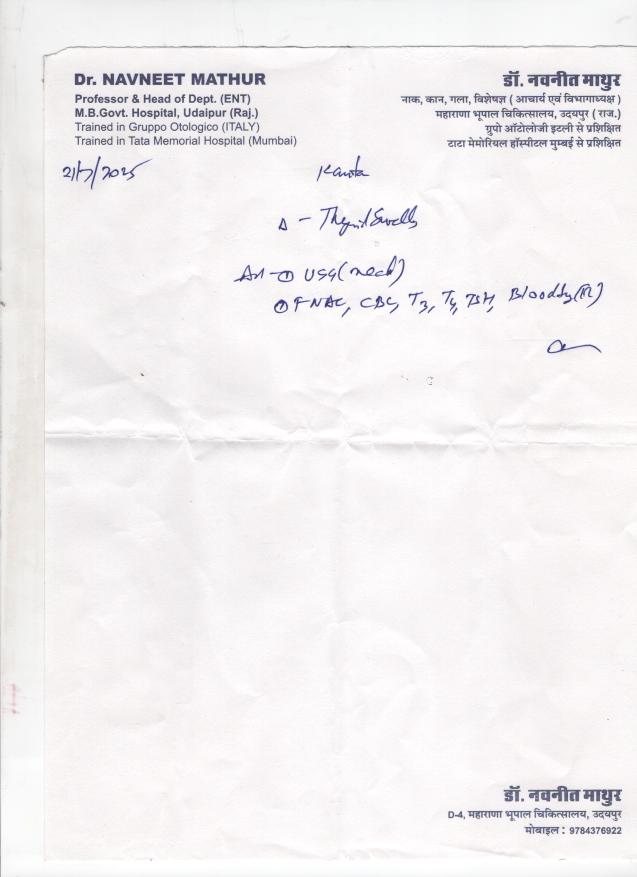 Dr. NAVNEET MATHUR
Professor & Head of Dept. (ENT)
M.B.Govt. Hospital, Udaipur (Raj.)
Trained in Gruppo Otologico (ITALY)
Trained in Tata Memorial Hospital (Mumbai)
डॉ. नवनीत माथुर
नाक, कान, गला, विशेषज्ञ ( आचार्य एवं विभागाध्यक्ष )
महाराणा भूपाल चिकित्सालय, उदयपुर ( राज.)
ग्रुपो ऑटोलोजी इटली से प्रशिक्षित
टाटा मेमोरियल हॉस्पीटल मुम्बई से प्रशिक्षित
21/7/2025
Δ - Thyroid Swelling
① USG (neck)
② FNAC, CBC, T3, T4, TSH,
डॉ. नवनीत माथुर
D-4, महाराणा भूपाल चिकित्सालय, उदयपुर
मोबाइल : 9784376922